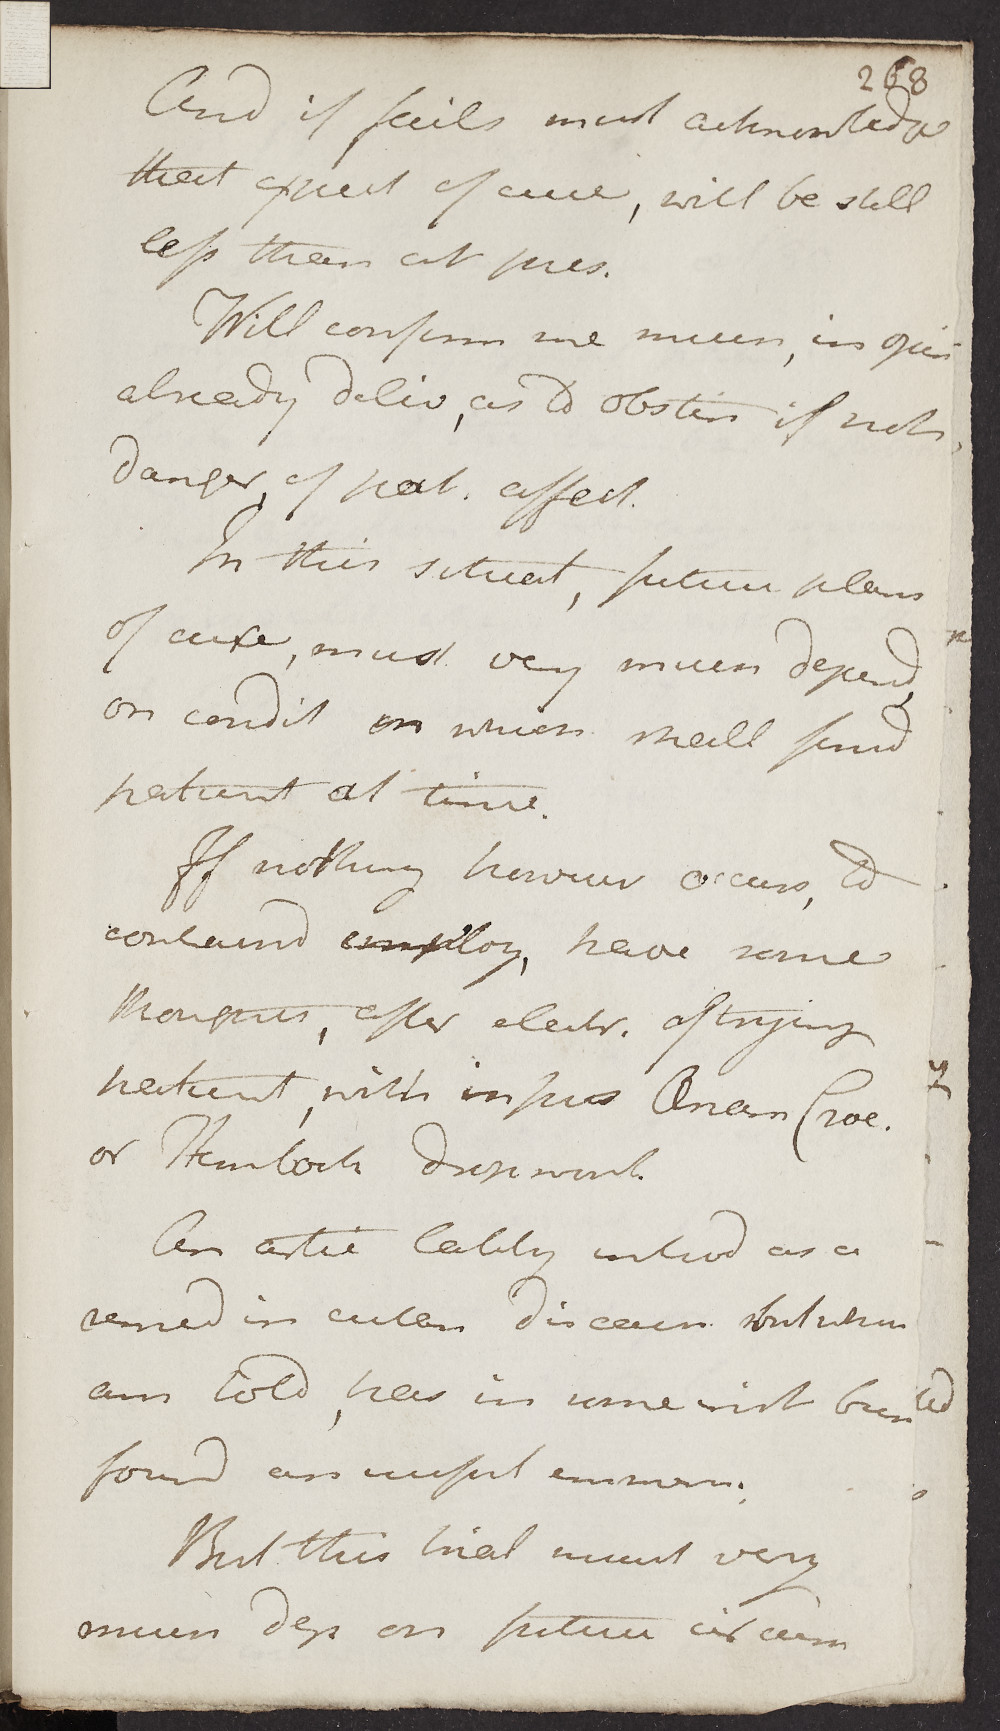 268
And if fails must acknowledge
that expect of cure, will be still
less than at pres.
Will confirm me much, in opin
already deliv, as to obstin if not
danger, of pat. affect.
In this situat, future plans
of cure, must very much depend,
on condit in which shall find
patient at time.
If nothing however occurs, to
contraind employ, have some
thoughts, after electr. of trying
patient, with infus Oenan Croc.
or Hemlock dropwort.
An artic lately introd as a
remed in cutan diseases but when
am told, has in some inst been
found an useful emmen.
But this trial must very
much dep on future circum